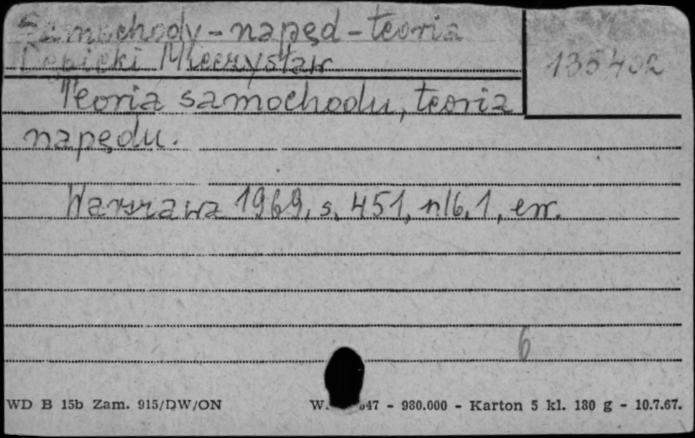 Samochody - napęd - teoria
Dębicki Mieczysław
135402
Teoria samochodu, teoria
napędu.
Warszawa 1969, s. 451, nlb. 1, err.
6
WD B 15b Zam. 915/DW/ON W. 47 - 980.000 - Karton 5 kl. 180 g - 10.7.67.